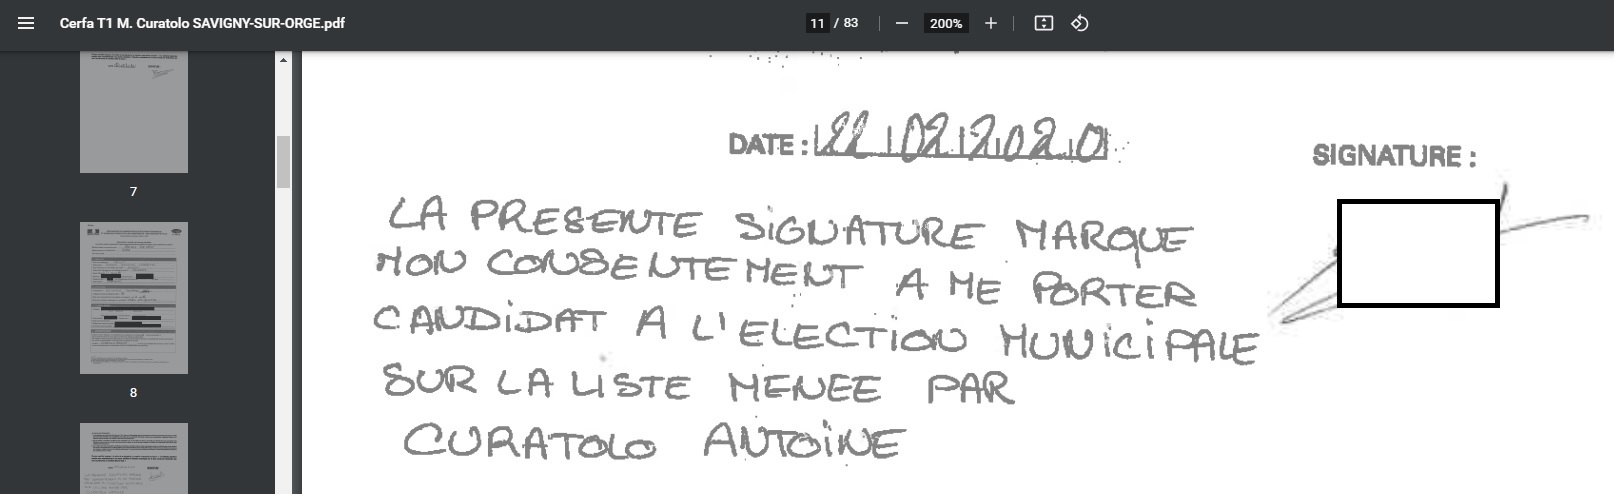 Cerfa T1 M. Curatolo SAVIGNY-SUR-ORGE.pdf
11 / 83
200%
7
8
DATE : 22 02 2020
SIGNATURE :
LA PRESENTE SIGNATURE MARQUE
MON CONSENTEMENT A ME PORTER
CANDIDAT A L'ELECTION MUNICIPALE
SUR LA LISTE MENEE PAR
CURATOLO ANTOINE